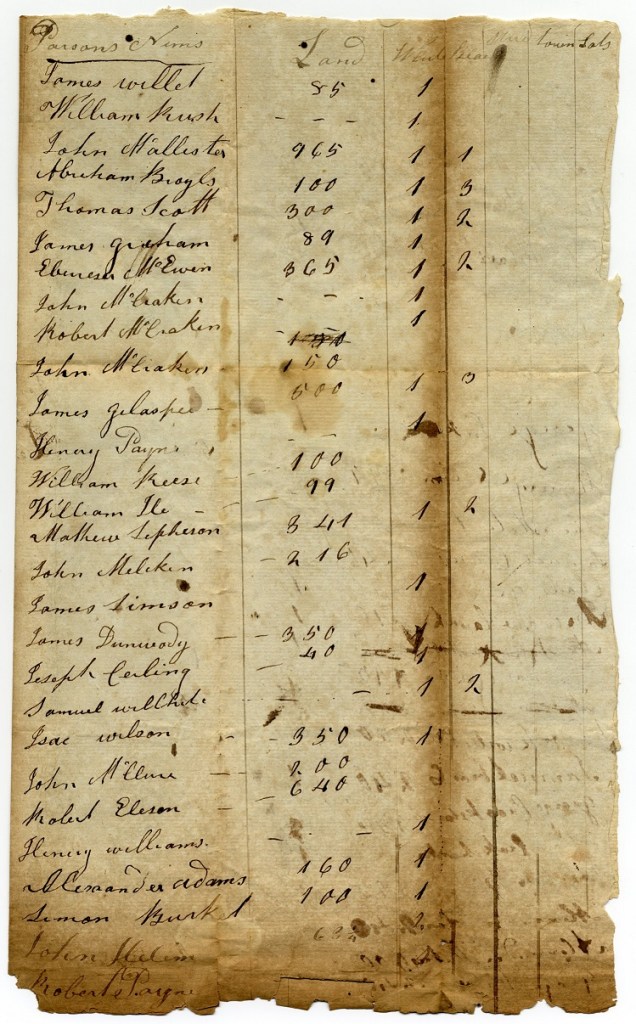 Parsons Nims Land White Black town Lots
James willet 85 1
William Rush - - - 1
John Mcallister 965 1 1
Abreham Broyls 100 1 3
Thomas Scott 300 1 2
James greham 89 1
Ebenesar McEwen 365 1 2
John McCraken - - 1
Robert McCraken 1
John McCraken 150
James gelaspee - 500 1 3
Henry Payn - - 1
William Reese 100
William Ile - 99
Mathew Sepherson 341 1 2
John Melcken - 216
James Simson 1
James Dunwody - - 350 1
Joseph Cerling 40 1
Samuel willhite - - 1 2
Isac wilson - - 350 1
John McClure - 200
Robert Eleson - 640
Henry williams - - - 1
Alexander adams 160 1
Simon Burk 100 1
John 2
Robert Payne